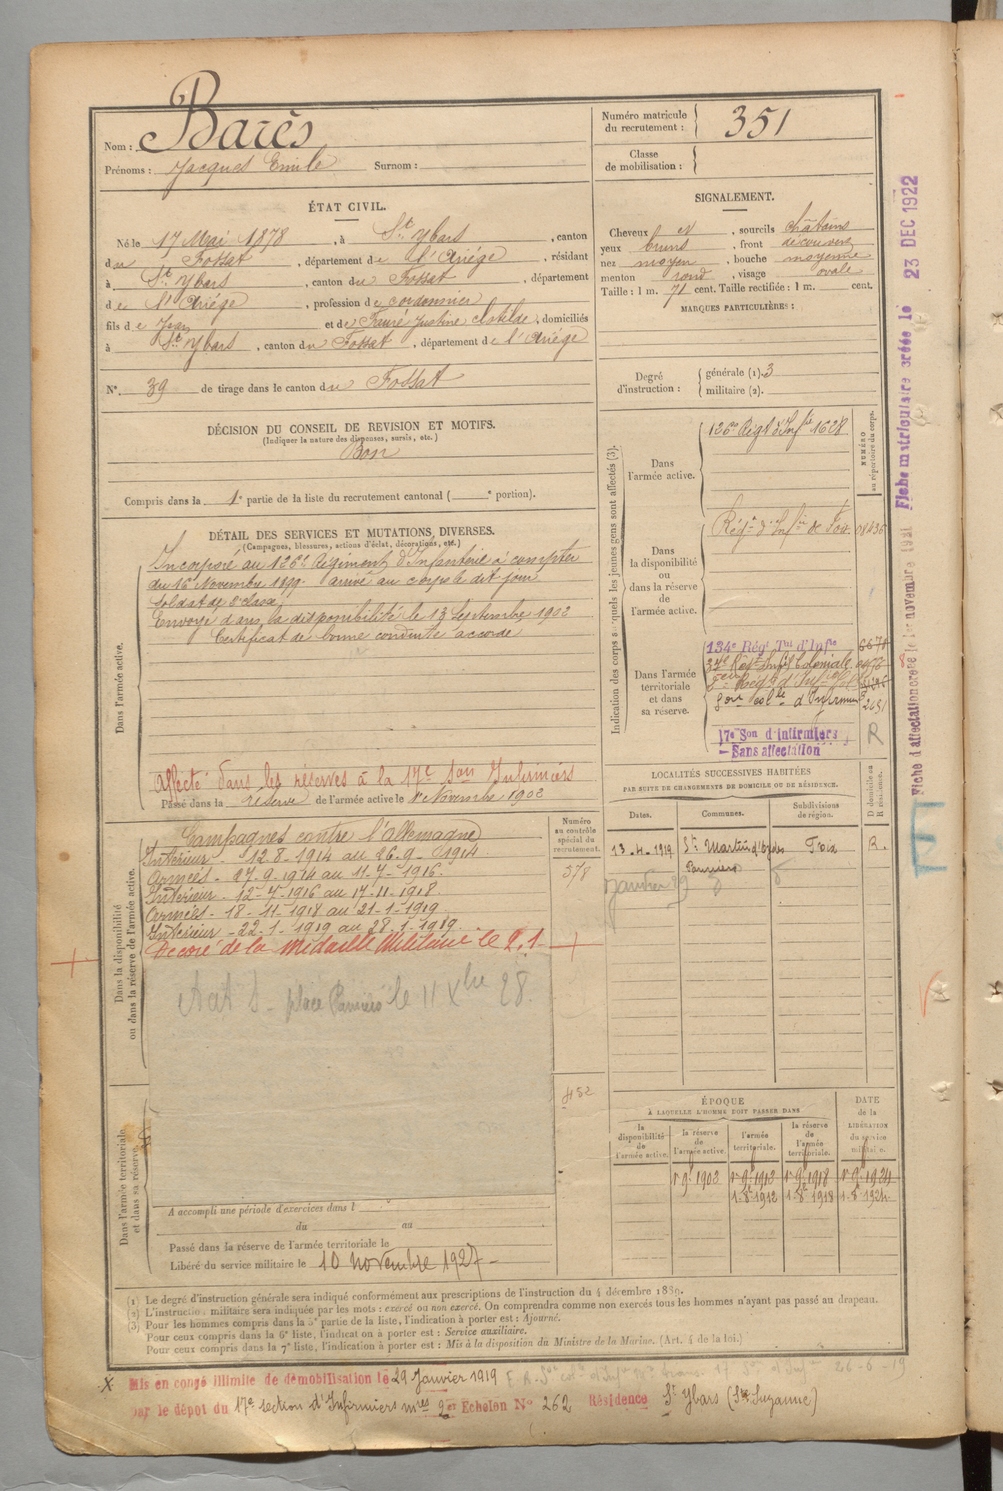 Nom : Barès
Prénoms : Jacques Emile Surnom :
Numéro matricule du recrutement : 351
Classe de mobilisation :
ÉTAT CIVIL.
Né le 17 Mai 1878, à St Ybars, canton
du Fossat, département de l'Ariège, résidant
à St Ybars, canton du Fossat, département
de l'Ariège, profession de cordonnier
fils de Jean et de Faure Justine Clotilde, domiciliés
à St Ybars, canton du Fossat, département de l'Ariège
N° 39 de tirage dans le canton du Fossat
SIGNALEMENT.
Cheveux et, sourcils châtains
yeux bruns, front découvert
nez moyen, bouche moyenne
menton rond, visage ovale
Taille : 1 m. 71 cent. Taille rectifiée : 1 m. cent.
MARQUES PARTICULIÈRES :
Degré d'instruction : générale (1). 3
militaire (2).
DÉCISION DU CONSEIL DE REVISION ET MOTIFS.
(Indiquer la nature des dispenses, sursis, etc.)
Bon
Compris dans la 1e partie de la liste du recrutement cantonal ( e portion).
DÉTAIL DES SERVICES ET MUTATIONS DIVERSES.
(Campagnes, blessures, actions d'éclat, décorations, etc.)
Dans l'armée active.
Incorporé au 126e Régiment d'Infanterie à compter
du 16 Novembre 1899. arrivé au corps le dit jour
Soldat de 2e classe
Envoyé dans la disponibilité le 13 Septembre 1902
Certificat de bonne conduite accordé
Affecté dans les réserves à la 17e Son Infirmiers
Passé dans la réserve de l'armée active le 1er Novembre 1902
Indication des corps auxquels les jeunes gens sont affectés (3).
NUMÉRO au répertoire du corps.
Dans l'armée active.
126e Régt d'Infie 1628
Dans la disponibilité ou dans la réserve de l'armée active.
Régt d'Infie de Foix 08436
Dans l'armée territoriale et dans sa réserve.
134e Régt Tal d'Infie 6678
17e Son d'Infirmiers R
— Sans affectation
LOCALITÉS SUCCESSIVES HABITÉES
PAR SUITE DE CHANGEMENTS DE DOMICILE OU DE RÉSIDENCE.
Dates. Communes. Subdivisions de région. D domicile ou R résidence.
13-4-1919 St Martin d'Oydes Foix R.
Pamiers
Dans la disponibilité ou dans la réserve de l'armée active.
Numéro au contrôle spécial du recrutement.
578
Campagnes contre l'Allemagne
Intérieur - 12-8-1914 au 26-9-1914
Armées - 27-9-1914 au 11-7-1916.
Intérieur - 12-7-1916 au 17-11-1918
Armées - 18-11-1918 au 21-1-1919
Intérieur - 22-1-1919 au 28-1-1919.
Décoré de la Médaille Militaire le 2.1
place Pamiers le 11 Xbre 28.
452
Dans l'armée territoriale et dans sa réserve.
A accompli une période d'exercices dans l
du au
Passé dans la réserve de l'armée territoriale le
Libéré du service militaire le 10 novembre 1927
ÉPOQUE
À LAQUELLE L'HOMME DOIT PASSER DANS
la disponibilité de l'armée active. la réserve de l'armée active. l'armée territoriale. la réserve de l'armée territoriale. DATE de la LIBÉRATION du service militaire.
1r 9e 1902 1r 9e 1912 1r 9e 1918 1r 9e 1924
1-8e 1912 1-8e 1918 1-8e 1924
(1) Le degré d'instruction générale sera indiqué conformément aux prescriptions de l'instruction du 4 décembre 1889.
(2) L'instruction militaire sera indiquée par les mots : exercé ou non exercé. On comprendra comme non exercés tous les hommes n'ayant pas passé au drapeau.
(3) Pour les hommes compris dans la 5e partie de la liste, l'indication à porter est : Ajourné.
Pour ceux compris dans la 6e liste, l'indication à porter est : Service auxiliaire.
Pour ceux compris dans la 7e liste, l'indication à porter est : Mis à la disposition du Ministre de la Marine. (Art. 4 de la loi.)
Mis en congé illimité de démobilisation le 29 Janvier 1919
par le dépôt du 17e section d'Infirmiers mres 2er Echelon N° 262 Résidence St Ybars (Ste Suzanne)
26-6-19
Fiche matriculaire créée le 23 DEC 1922